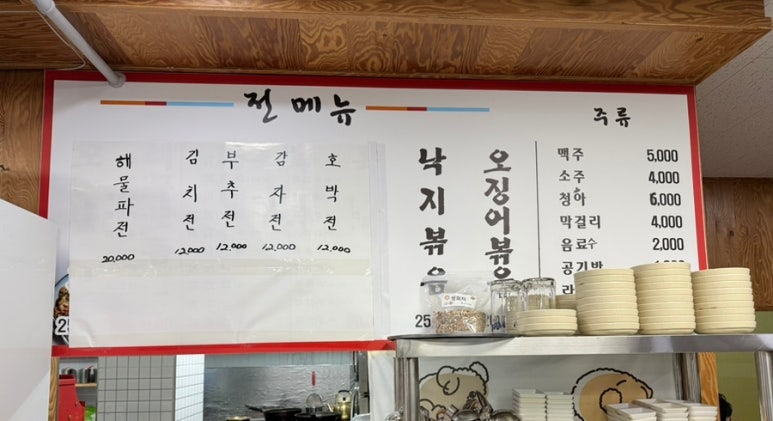 전 메뉴
해물파전 20,000
김치전 12,000
부추전 12,000
감자전 12,000
호박전 12,000
낙지볶음
오징어볶음
주류
맥주 5,000
소주 4,000
청하 6,000
막걸리 4,000
음료수 2,000
공기밥
25
25